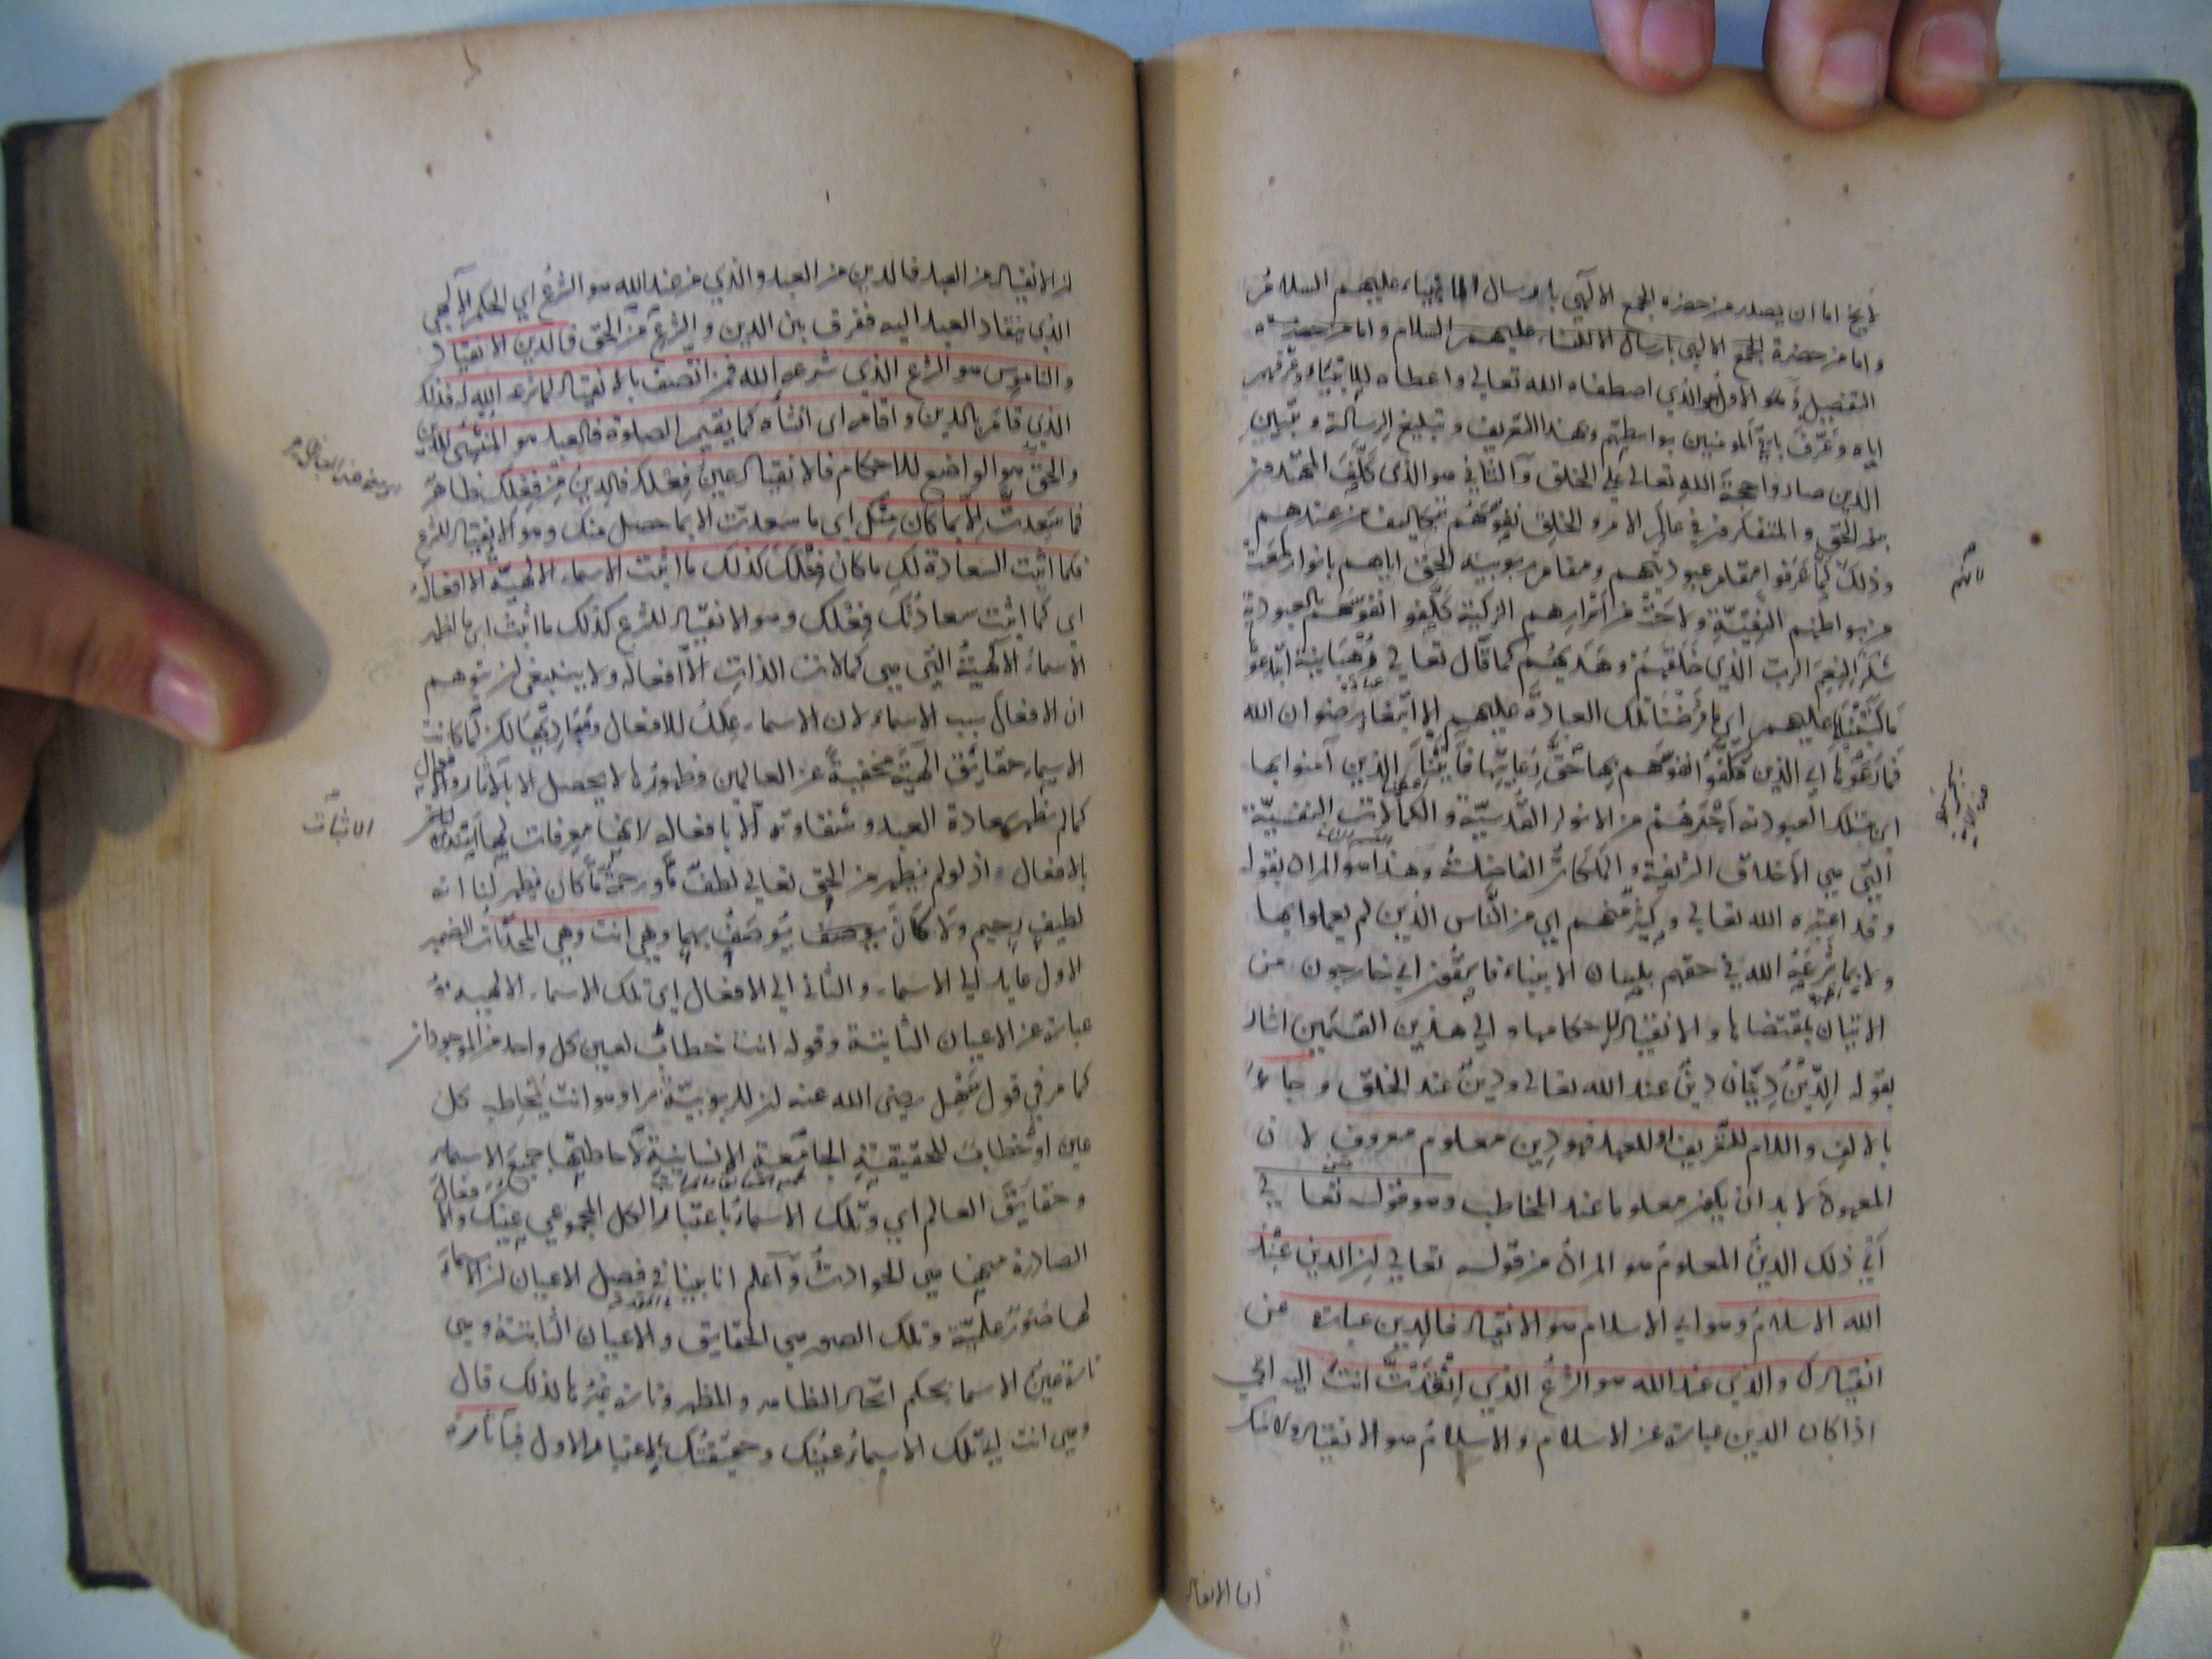 لا يخ اما ان يصدر من حضرة الجمع الالهي بارسال الانبياء عليهم السلام
واما من حضرة الجمع الالهي بارسال الانبياء عليهم السلام واما من حضرة
التفصيل والاول هو الذي اصطفاه الله تعالى واعطاه للانبياء وعرفهم
اياه وعرف المؤمنين بواسطتهم وهذا التعريف وتبليغ الرسالة وتبيين
الدين صاروا حجة الله تعالى على الخلق والثاني هو الذي كلف
الحق والمتفكرون في عالم الامر والخلق نفوسهم بتكاليف من عندهم
وذلك لما عرفوا مقام عبوديتهم ومقام ربوبية الحق اياهم بانوار لمعت
من بواطنهم ولاحت من اسرارهم الزكية كلفو انفوسهم بالعبودية
شكرا لنعم الرب الذي خلقهم وهديهم كما قال تعالى ورهبانية ابتدعوها
ما كتبناها عليهم اي ما فرضنا تلك العبادة عليهم الا ابتغاء رضوان الله
فما رعوها اي الذين كلفوا انفوسهم بها حق رعايتها فآتينا الذين آمنوا بها
اي بتلك العبودية اجرهم من الانوار القدسية والكمالات النفسية
التي هي الاخلاق الشريفة والملكات الفاضلة وهذا هو المراد بقوله
وقد اعتبره الله تعالى وكثير منهم اي من الناس الذين لم يعملوا بها
ولا بما شرعه الله في حقهم بلسان الانبياء فاسقون اي خارجون من
الاتيان بمقتضاها والانقياد لاحكامها والى هذين القسمين اشار
بقوله الدين دينان دين عند الله تعالى ودين عند الخلق وجاء
بالالف واللام للتعريف او للعهد فهو دين معلوم معروف لان
المعهود لا بد ان يكون معلوما عند المخاطب وهو قوله تعالى
اي ذلك الدين المعلوم هو المراد من قوله تعالى ان الدين عند
الله الاسلام وهو اي الاسلام هو الانقياد فالدين عبارة عن
انقيادك والذي عند الله هو الشرع الذي انقدت انت اليه اي
اذا كان الدين عبارة عن الاسلام والاسلام هو الانقياد ولا شك
ان الانقياد
ان الانقياد من العبد فالدين من العبد والذي من عند الله هو الشرع اي الحكم الالهي
الذي ينقاد العبد اليه ففرق بين الدين والشرع من الحق فالدين الانقياد
والناموس هو الشرع الذي شرعه الله فمن اتصف بالانقياد لما شرعه الله له فذلك
الذي قام بالدين واقامه اي انشأه كما يقيم الصلوة فالعبد هو المنشئ للدين
والحق هو الواضع للاحكام فالانقياد عين فعلك فالدين من فعلك ظاهر
فما سعدت الا بما كان منك اي ما سعدت الا بما حصل منك وهو الانقياد للشرع
فكما اثبت السعادة لك ما كان فعلك كذلك ما اثبت الاسماء الالهية الا افعاله
اي كما اثبت سعادتك فعلك وهو الانقياد للشرع كذلك ما اثبت اي ما اظهر
الاسماء الالهية التي هي كمالات الذات الا افعاله ولا ينبغي ان يتوهم
ان الافعال سبب الاسماء لان الاسماء علل للافعال ومباديها لكن لما كانت
الاسماء حقايق الهية مخفية عن العالمين وظهورها لا يحصل الا بالآثار والافعال
كما لم يظهر سعادة العبد وشقاوته الا بافعاله لانها معرفات لها
الاثبات
بالافعال اذ لو لم يظهر من الحق تعالى لطف ما ورحمة ما كان يظهر لنا انه
لطيف رحيم ولا كان يوصف يوصف بهما وهي انت وهي المحدثات الضمير
الاول عايد الى الاسماء والثاني الى الافعال اي تلك الاسماء الالهية
عبارة عن الاعيان الثابتة وقوله انت خطاب لعين كل واحد من الموجودات
كما مر في قول سهل رضى الله عنه ان للربوبية سرا وهو انت يخاطب كل
عين او خطاب للحقيقة الجامعة الانسانية لاحاطتها جميع الاسماء
وحقايق العالم اي وتلك الاسماء باعتبار الكل المجموعي عينك والافعال
الصادرة منها هي الحوادث واعلم انا بينا في فصل الاعيان ان الاسماء
لها صور علمية وتلك الصور هي الحقايق والاعيان الثابتة وهي
تارة عين الاسماء بحكم اتحاد الظاهر والمظهر وتارة غيرها لذلك قال
وهي انت اي تلك الاسماء عينك وحقيقتك بالاعتبار الاول فبآثاره